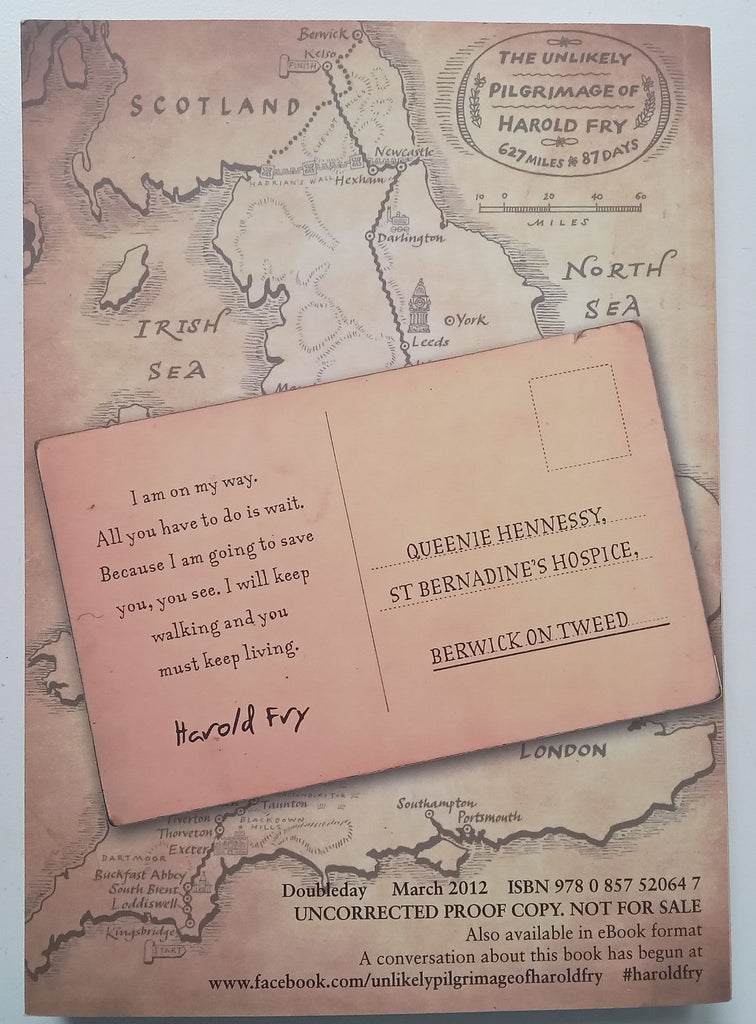 Berwick
Kelso
FINISH
THE UNLIKELY
PILGRIMAGE OF
HAROLD FRY
627 MILES * 87 DAYS
SCOTLAND
CHEVIOT
Newcastle
HADRIAN'S WALL
Hexham
10 0 20 40 60
MILES
Darlington
NORTH
SEA
York
IRISH
SEA
Leeds
I am on my way.
All you have to do is wait.
Because I am going to save
you, you see. I will keep
walking and you
must keep living.
Harold Fry
QUEENIE HENNESSY,
ST BERNADINE'S HOSPICE,
BERWICK ON TWEED
LONDON
Taunton
Tiverton
BLACKDOWN
HILLS
Thorveton
Exeter
Southampton
Portsmouth
DARTMOOR
Buckfast Abbey
South Brent
Loddiswell
Kingsbridge
START
Doubleday March 2012 ISBN 978 0 857 52064 7
UNCORRECTED PROOF COPY. NOT FOR SALE
Also available in eBook format
A conversation about this book has begun at
www.facebook.com/unlikelypilgrimageofharoldfry #haroldfry